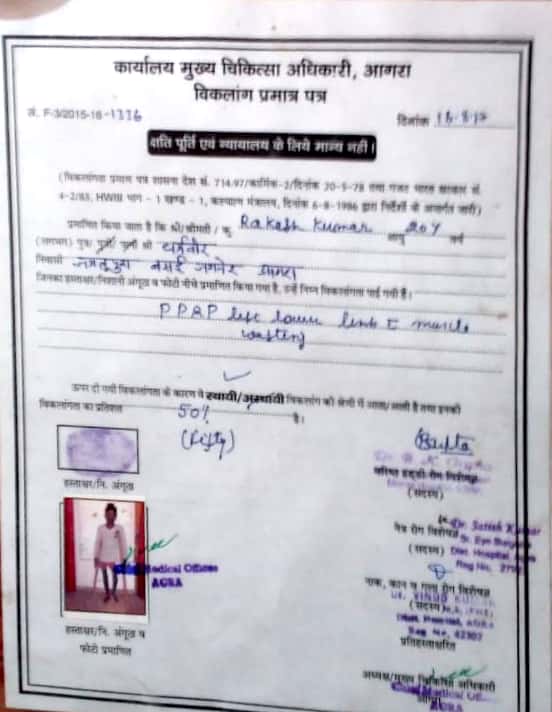 कार्यालय मुख्य चिकित्सा अधिकारी, आगरा
विकलांग प्रमात्र पत्र
सं. F-3/2015-16-1336
दिनांक
क्षति पूर्ति एवं न्यायालय के लिये मान्य नहीं।
(विकलांगता प्रमाण पत्र शासना देश सं. 714-97/कार्मिक-2/दिनांक 20-5-78 तथा गजट भारत सरकार सं.
4-2/83, HWIII भाग - 1 खण्ड - 1, कल्याण मंत्रालय, दिनांक 6-8-1986 द्वारा निर्देशों के अन्तर्गत जारी)
प्रमाणित किया जाता है कि श्री/श्रीमती / कु Rakesh Kumar आयु 20 y वर्ष
(लगभग) पुत्र/ पुत्री/ पत्नी श्री
निवासी आगरा
जिनका हस्ताक्षर/निशानी अंगूठा व फोटो नीचे प्रमाणित किया गया है, उन्हें निम्न विकलांगता पाई गयी हैं।
PPRP left lower limb c muscle
wasting
ऊपर दी गयी विकलांगता के कारण ये स्थायी/अस्थायी विकलांग की श्रेणी में आता/आती है तथा इनकी
विकलांगता का प्रतिशत 50% है।
(Fifty)
हस्ताक्षर/नि. अंगूठा
वरिष्ठ हड्डी रोग विशेषज्ञ
(सदस्य)
Dr. Satish Kumar
नेत्र रोग विशेषज्ञ Sr. Eye Surgeon
(सदस्य) Dist. Hospital, Agra
Reg No.
Chief Medical Officer
AGRA
नाक, कान व गला रोग विशेषज्ञ
DR. VINOD KUMAR
(सदस्य)
Distt. Hospital, AGRA
Reg No. 42307
प्रतिहस्ताक्षरित
हस्ताक्षर/नि. अंगूठा व
फोटो प्रमाणित
अध्यक्ष/मुख्य चिकित्सा अधिकारी
Chief Medical Officer
आगरा
AGRA